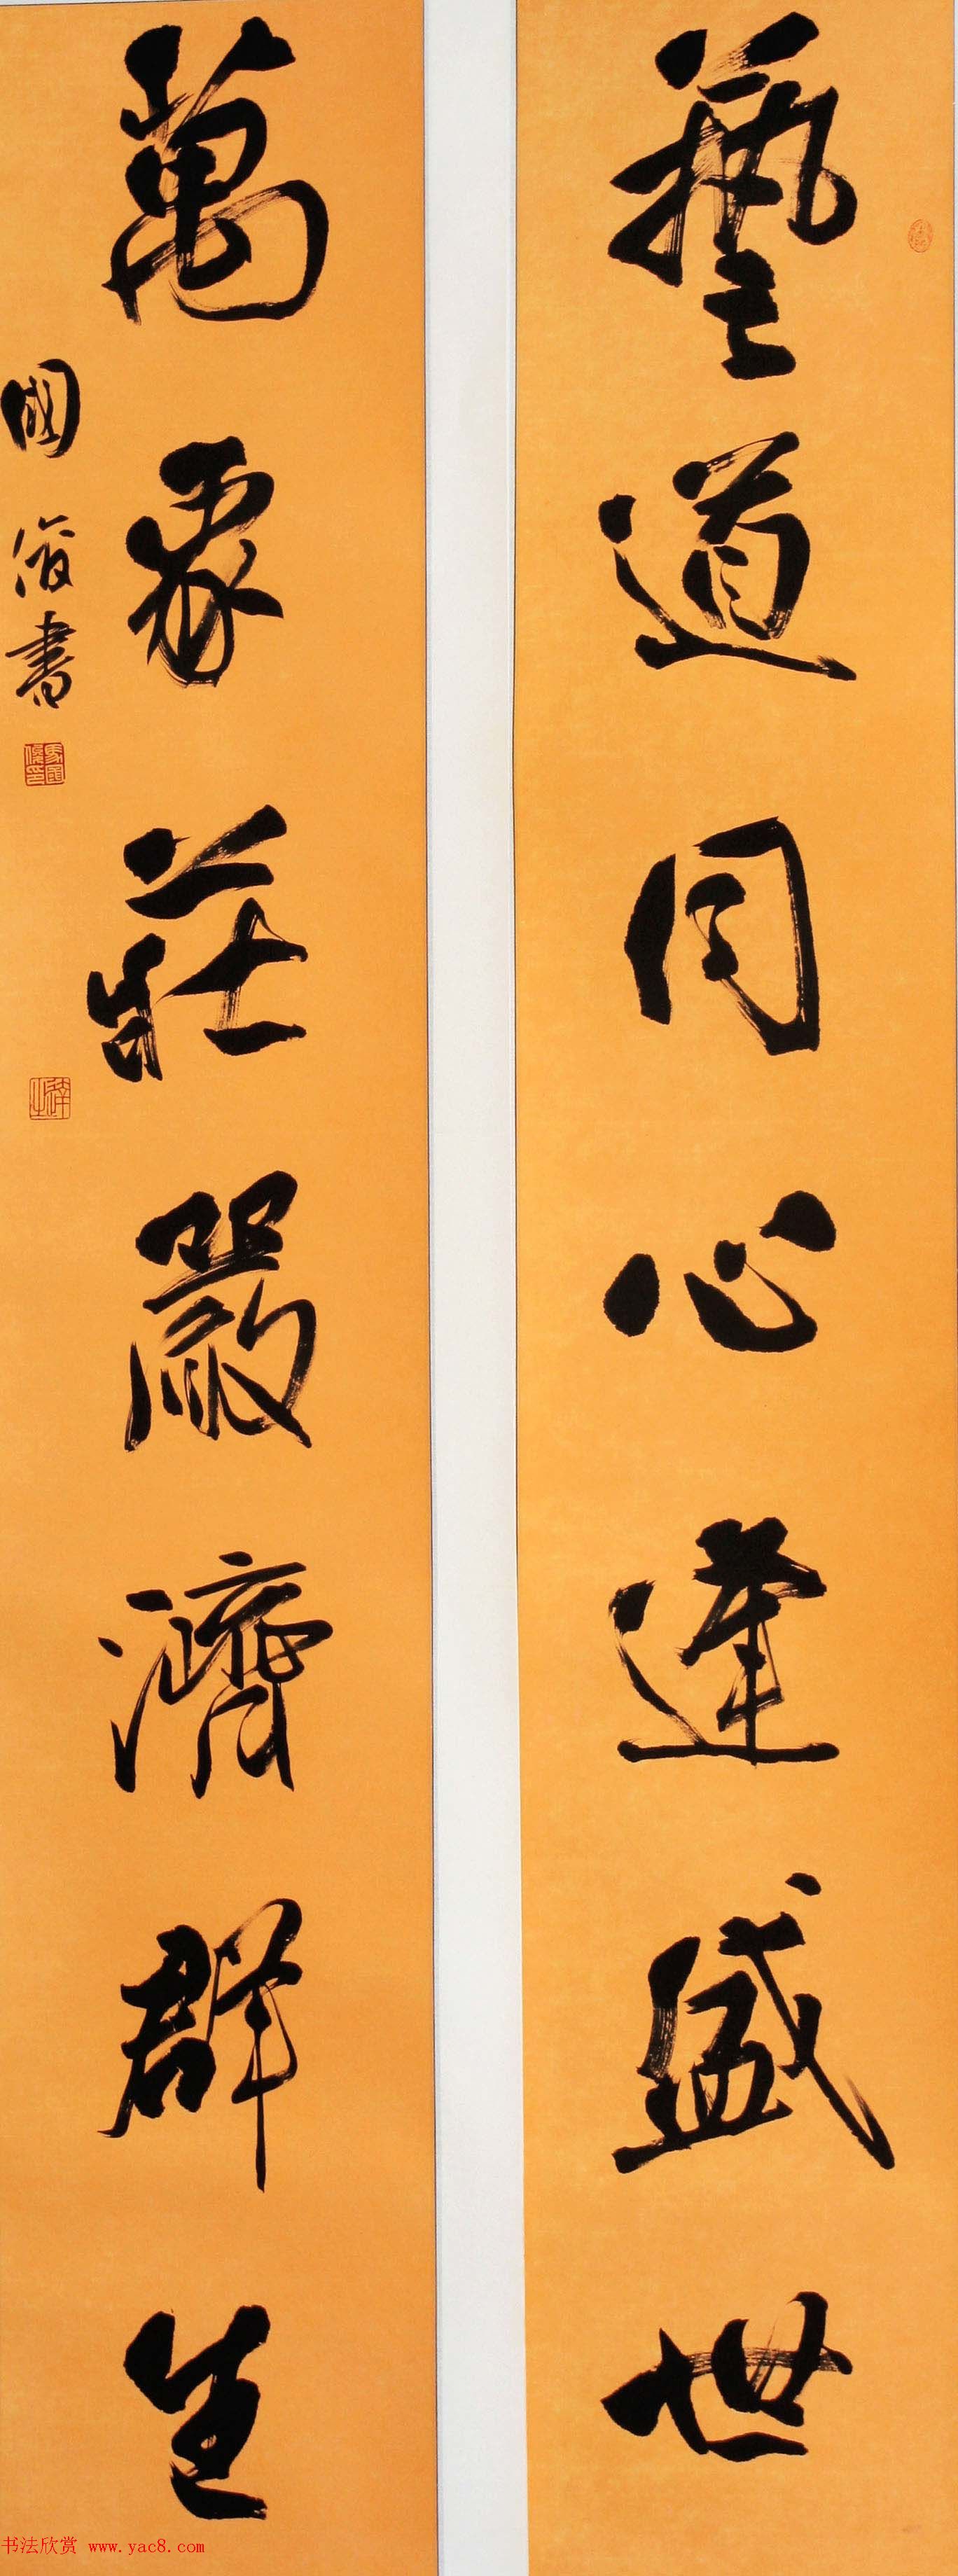 藝道同心逢盛世
萬象莊嚴濟群生
國俊書
书法欣赏 www.yac8.com